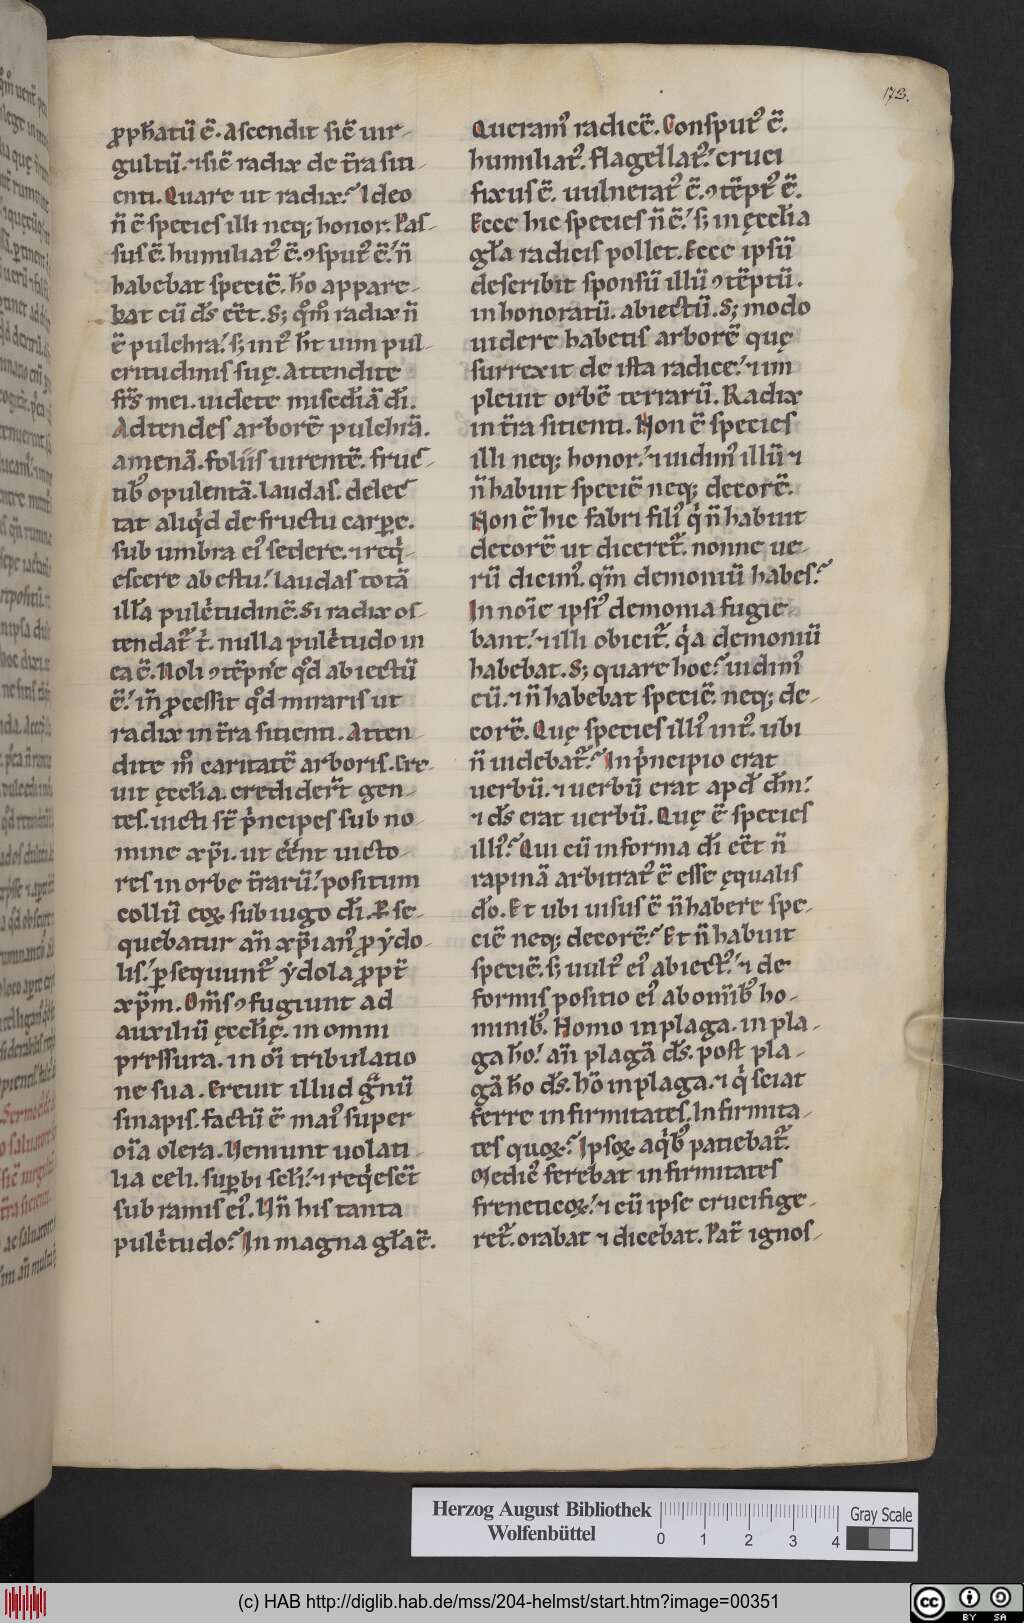 173.
ꝓphatū ē. Ascendit sic̄ uir-
gultū. ⁊ sic̄ radix de t̄ra siti-
enti. Quare ut radix? Ideo
n̄ ē species illi neq; honor. Pas-
sus ē. humiliat᷒ ē. ꝯsput᷒ ē. n̄
habebat speciē. h̄o appare-
bat cū ds̄ eēt. S; qm̊ radix n̄
ē pulchra. s; int᷒ h̄t uim pul-
critudinis suę. Attendite
frs̄ mei. uidete misc̄diā dī.
Adtendes arborē pulchrā.
amenā. foliis uirentē. fruc-
tib᷒ opulentā. laudas. delec-
tat aliq̇d de fructu carꝑe.
sub umbra ei᷒ sedere. ⁊ req̇-
escere ab estu. laudas totā
illā pulc̍tudinē. Si radix os-
tendat᷑ t̍. nulla pulc̍tudo in
ea ē. Noli ꝯtēpn̄e qd̊ abiectū
ē. in̄ ꝓcessit qd̊ miraris ut
radix in t̄ra sitienti. Atten-
dite m̊ caritatē arboris. Cre-
uit ęccl̄ia. credider̄t gen-
tes. uicti st̄ p̍ncipes sub no-
mine xp̄i. ut eēnt uicto-
res in orbe t̄rarū. positum
collū eoꝝ sub iugo dī. P̲se-
quebatur an̄ xp̄iani᷒ ꝓ ẏdo-
lis. ꝑsequunt᷑ ẏdola ꝓpt̄
xp̄m. Om̄s ꝯfugiunt ad
auxiliū ęccl̄ię. in omni
pressura. in oī tribulatio-
ne sua. Creuit illud gᷓnū
sinapis. factū ē mai᷒ super
oīa olera. Ueniunt uolati-
lia celi. suꝑbi scl̄i. ⁊ req̇esct̄
sub ramis ei᷒. Un̄ his tanta
pulc̍tudo? In magna gl̄a ē.
Queram᷒ radicē. Consput᷒ ē.
humiliat᷒. flagellat᷒. cruci
fixus ē. uulnerat᷒ ē. ꝯtēpt᷒ ē.
Ecce hic species n̄ ē. s; in ęccl̄ia
gl̄a radicis pollet. Ecce ipsū
describit sponsū illū ꝯtēptū.
inhonoratū. abiectū. S; modo
uidere habetis arborē quę
surrexit de ista radice. ⁊ im
pleuit orbē terrarū. Radix
in t̄ra sitienti. Non ē species
illi neq; honor. ⁊ uidim᷒ illū ⁊
n̄ habuit speciē neq; decorē.
Non ē hic fabri fili᷒ q̇ n̄ habuit
decorē ut diceret᷑. nonne ue-
rū dicim᷒. qm̄ demoniū habes?
In noīe ipsi᷒ demonia fugie-
bant. ⁊ illi obicit᷑. q̇a demoniū
habebat. S; quare hoc? uidim᷒
eū. ⁊ n̄ habebat speciē. neq; de-
corē. Quę species illi᷒ int᷒. ubi
n̄ uidebat᷑? In p̍ncipio erat
uerbū. ⁊ uerbū erat apd̄ dm̄.
⁊ ds̄ erat uerbū. Quę ē species
illi᷒? Qui cū in forma dī eēt n̄
rapinā arbitrat᷒ ē esse ęqualis
do̅. Et ubi uisus ē n̄ habere spe-
ciē neq; decorē? Et n̄ habuit
speciē. s; uult᷒ ei᷒ abiect᷒. ⁊ de-
formis positio ei᷒ ab omīb᷒ ho-
minib᷒. Homo in plaga. in pla-
ga h̄o. an̄ plagā ds̄. post pla-
gā h̄o ds̄. hō in plaga. ⁊ q̇ sciat
ferre infirmitates. Infirmita-
tes quoꝝ? Ipsoꝝ a q̇b᷒ patiebat᷑.
Medic᷒ ferebat infirmitates
freneticoꝝ. ⁊ cū ipse crucifige-
ret᷑. orabat ⁊ dicebat. Pat̄ ignos-
Herzog August Bibliothek
Wolfenbüttel
0 1 2 3 4
Gray Scale
(c) HAB http://diglib.hab.de/mss/204-helmst/start.htm?image=00351
cc BY SA